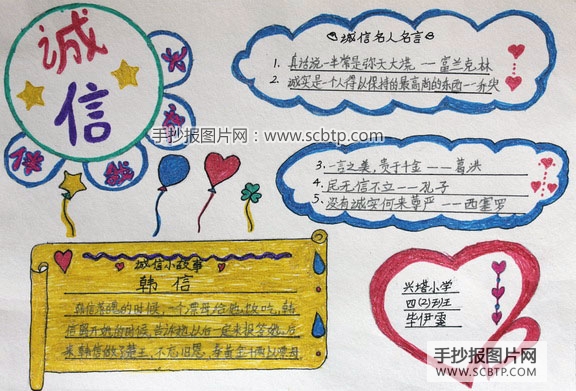 诚
信
诚信名人名言
1. 真话说一半常是弥天大谎 -- 富兰克林
2. 诚实是一个人得以保持的最高尚的东西 -- 乔叟
手抄报图片网：www.scbtp.com
3. 一言之美，贵于千金 —— 葛洪
4. 民无信不立 --- 孔子
5. 没有诚实何来尊严 -- 西塞罗
诚信小故事
韩信
韩信落魄的时候，一个漂母给他饭吃，韩
信离开她的时候，告诉她以后一定来报答她，后
来韩信做了楚王，不忘旧恩，奉黄金千两以漂母
兴塔小学
四(2)班
毕伊雯
手抄报图片网
WWW.SCBTP.COM